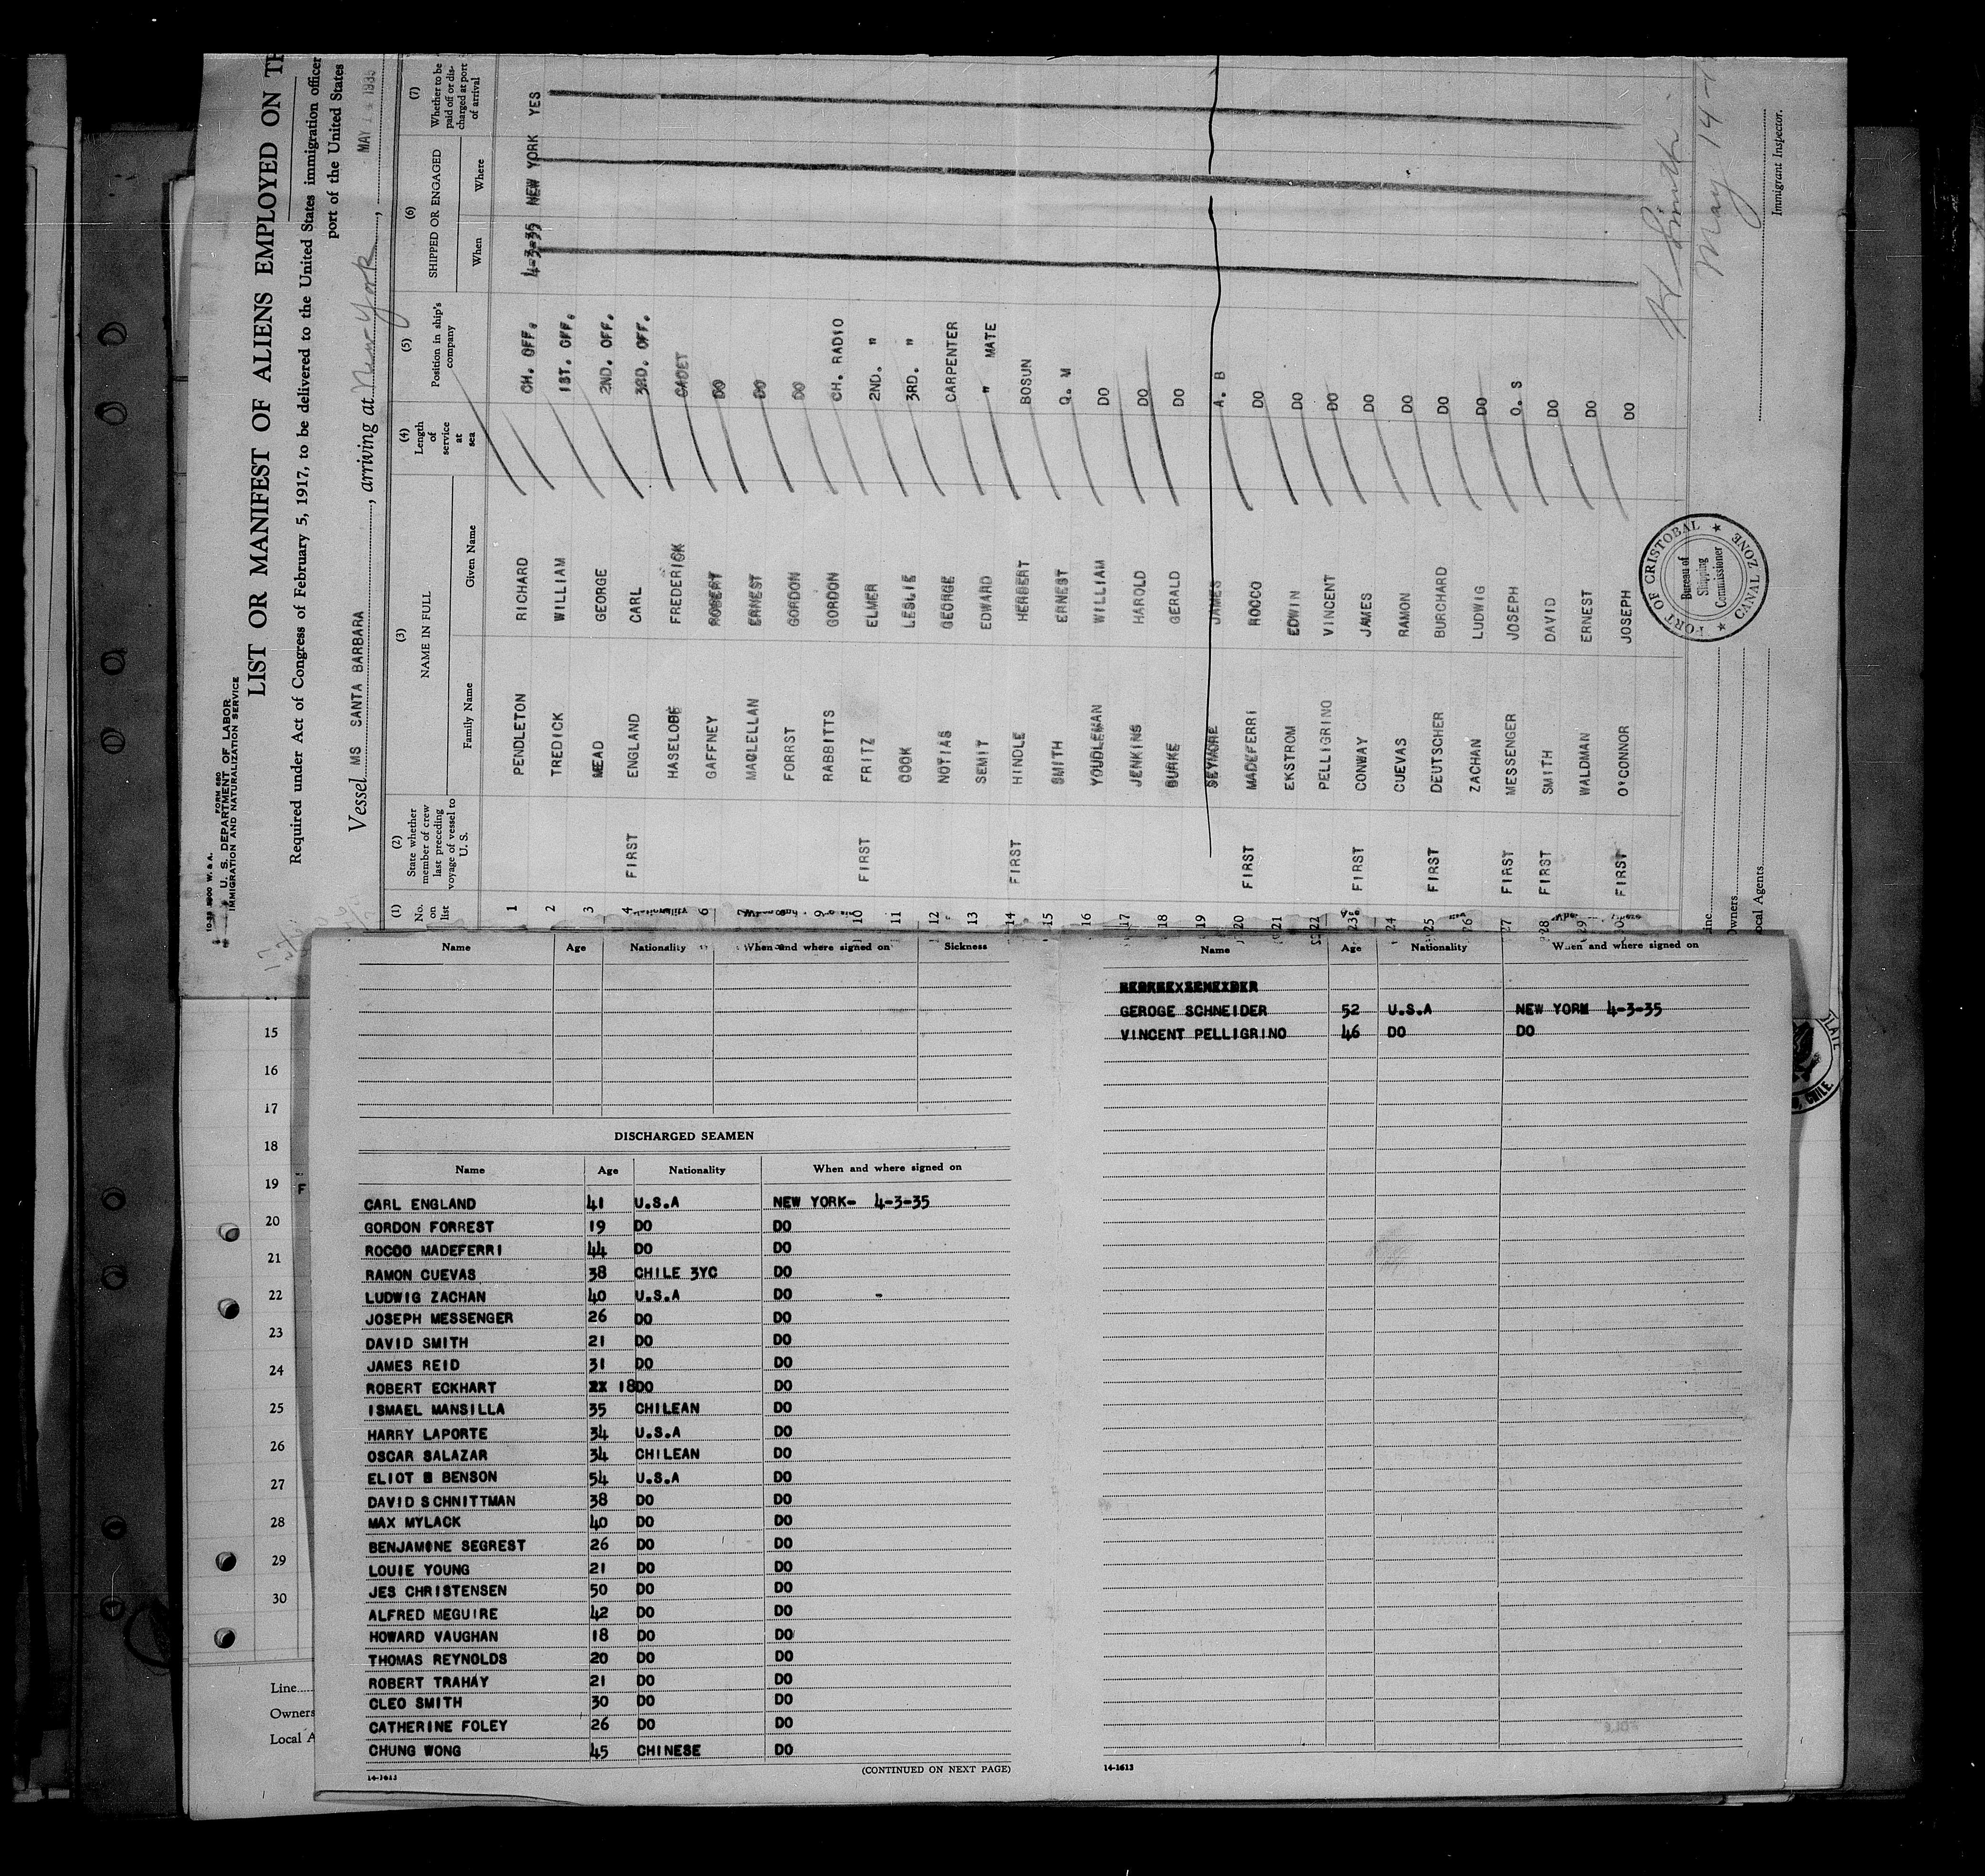 10-28 2000 W. & A.
FORM 680
U. S. DEPARTMENT OF LABOR
IMMIGRATION AND NATURALIZATION SERVICE
LIST OR MANIFEST OF ALIENS EMPLOYED ON TH
Required under Act of Congress of February 5, 1917, to be delivered to the United States immigration officer
port of the United States
Vessel MS SANTA BARBARA, arriving at New-York, MAY 14 1935
(1) (2) (3) (4) (5) (6) (7)
No. on list
State whether member of crew last preceding voyage of vessel to U. S.
NAME IN FULL
Family Name Given Name
Length of service at sea
Position in ship's company
SHIPPED OR ENGAGED
When Where
Whether to be paid off or discharged at port of arrival
1 PENDLETON RICHARD CH. OFF. 4-3-35 NEW YORK YES
2 TREDICK WILLIAM 1ST. OFF.
3 MEAD GEORGE 2ND. OFF.
4 FIRST ENGLAND CARL 3RD. OFF.
HASELOBE FREDERICK CADET
6 GAFFNEY ROBERT DO
MACLELLAN ERNEST DO
FORRST GORDON DO
9 RABBITTS GORDON CH. RADIO
10 FIRST FRITZ ELMER 2ND. "
11 COOK LESLIE 3RD. "
12 NOTIAS GEORGE CARPENTER
13 SEMIT EDWARD " MATE
14 FIRST HINDLE HERBERT BOSUN
15 SMITH ERNEST Q. M
16 YOUDLEMAN WILLIAM DO
17 JENKINS HAROLD DO
18 BURKE GERALD DO
19 SEYMORE JAMES A. B
20 FIRST MADEFERRI ROCCO DO
21 EKSTROM EDWIN DO
22 PELLIGRINO VINCENT DO
23 FIRST CONWAY JAMES DO
24 CUEVAS RAMON DO
25 FIRST DEUTSCHER BURCHARD DO
26 ZACHAN LUDWIG DO
27 FIRST MESSENGER JOSEPH O. S
28 FIRST SMITH DAVID DO
29 WALDMAN ERNEST DO
30 FIRST O'CONNOR JOSEPH DO
PORT OF CRISTOBAL
CANAL ZONE
Bureau of
Shipping
Commissioner
Smith
May 14-
Immigrant Inspector.
Local Agents
Name Age Nationality When and where signed on Sickness
DISCHARGED SEAMEN
Name Age Nationality When and where signed on
CARL ENGLAND 41 U.S.A NEW YORK- 4-3-35
GORDON FORREST 19 DO DO
ROCOO MADEFERRI 44 DO DO
RAMON CUEVAS 38 CHILE 3YC DO
LUDWIG ZACHAN 40 U.S.A DO -
JOSEPH MESSENGER 26 DO DO
DAVID SMITH 21 DO DO
JAMES REID 31 DO DO
ROBERT ECKHART 18 DO DO
ISMAEL MANSILLA 35 CHILEAN DO
HARRY LAPORTE 34 U.S.A DO
OSCAR SALAZAR 34 CHILEAN DO
ELIOT B BENSON 54 U.S.A DO
DAVID SCHNITTMAN 38 DO DO
MAX MYLACK 40 DO DO
BENJAMONE SEGREST 26 DO DO
LOUIE YOUNG 21 DO DO
JES CHRISTENSEN 50 DO DO
ALFRED MEGUIRE 42 DO DO
HOWARD VAUGHAN 18 DO DO
THOMAS REYNOLDS 20 DO DO
ROBERT TRAHAY 21 DO DO
CLEO SMITH 30 DO DO
CATHERINE FOLEY 26 DO DO
CHUNG WONG 45 CHINESE DO
14-1613 (CONTINUED ON NEXT PAGE)
Name Age Nationality When and where signed on
GEROGE SCHNEIDER 52 U.S.A NEW YORM 4-3-35
VINCENT PELLIGRINO 46 DO DO
14-1613
15
16
17
18
19 F
20
21
22
23
24
25
26
27
28
29
30
Line
Owners
Local A
CHILE.